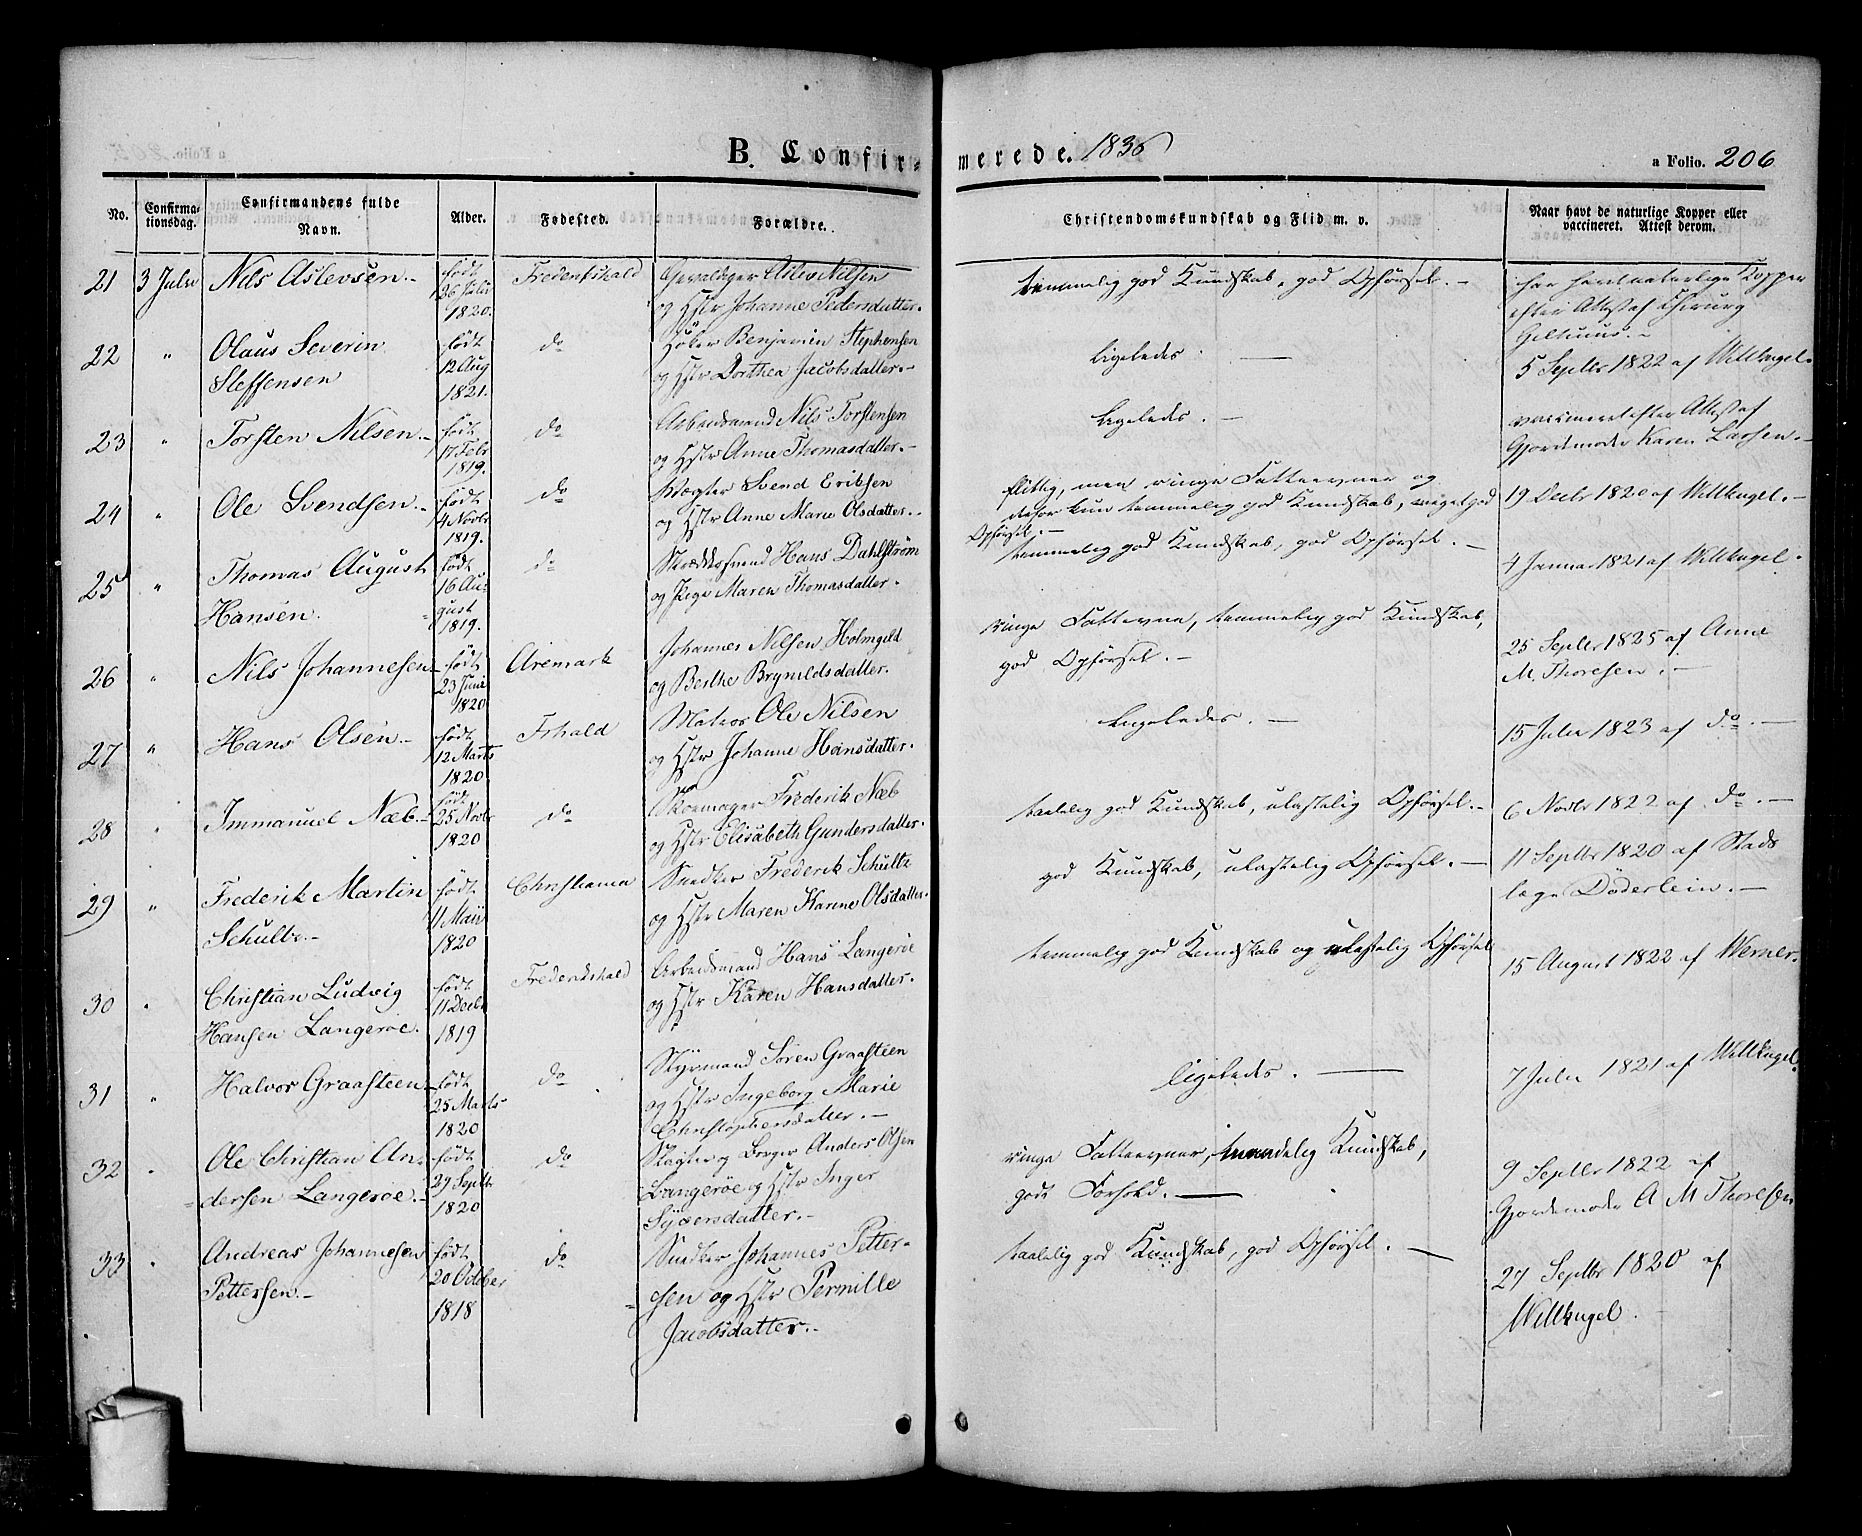 B. Confirmerede. 1836
a Folio. 206
No. Confirmationsdag. Confirmandens fulde Navn. Alder. Fødested. Forældre. Christendomskundskab og Flid m. v. Naar havt de naturlige Kopper eller vaccineret. Attest derom.
21 3 Julii Nils Aslevsen.- født 26 Julii 1820. Frederikshald Gevaldiger Aslev Nilsen
og Hstr Johanne Pedersdatter. temmelig god Kundskab, god Opførsel.- har havt naturlige Kopper
efter Attest af Chirurg
22 " Olaus Severin
Steffensen født 12 Aug 1821. do Høker Benjamin Stephensen
og Hstr Dorthea Jacobsdatter.- Ligeledes.- 5 Septbr 1822 af Willkugel.
23 " Torsten Nilsen.- født 17 Febr 1819. do Arbeidsmand Nils Torstensen
og Hstr Anne Thomasdatter.- Ligeledes.- vaccineret efter Attest af
Gjordemoder Karen Larsen.-
24 " Ole Svendsen.- født 4 Novbr 1819. do Vægter Svend Eriksen
og Hstr Anne Marie Olsdatter.- flittig, men ringe Fatteevner og
derfor kun temmelig god Kundskab, meget god
Opførsel.- 19 Decbr 1820 af Willkugel.-
25 " Thomas August
Hansen. født 16 August 1819. do Skræddersvend Hans Dahlstrøm
og Pige Maren Thomasdatter.- temmelig god Kundskab, god Opførsel.- 4 Januar 1821 af Willkugel.
26 " Nils Johannesen født 23 Juni 1820 Aremark Johannes Nilsen Holmgild
og Berthe Brynildsdatter. ringe Fatteevne, temmelig god Kundskab,
god Opførsel.- 25 Septbr 1825 af Anne
M. Thoresen.-
27 " Hans Olsen.- født 12 Marts 1820 Frhald Matros Ole Nilsen
og Hstr Johanne Hansdatter. Ligeledes.- 15 Julii 1823 af do.-
28 " Immanuel Næb.- født 25 Novbr 1820 do Skomager Frederik Næb
og Hstr Elisabeth Gundersdatter. taalelig god Kundskab, ulastelig Opførsel.- 6 Novbr 1822 af do.-
29 " Frederik Martin
Schultz.- født 11 Maii 1820 Christiania Snedker Frederik Schultz
og Hstr Maren Karine Olsdatter. god Kundskab, ulastelig Opførsel.- 11 Septbr 1820 af Stads
læge Döderlein.-
30 " Christian Ludvig
Hansen Langerøe. født 11 Decbr 1819 Frederikshald Arbeidsmand Hans Langerøe
og Hstr Karen Hansdatter. temmelig god Kundskab og ulastelig Opførsel 15 August 1822 af Werner.
31 " Halvor Graasteen født 25 Marts 1820 do Styrmand Søren Graasteen
og Hstr Ingeborg Marie
Christophersdatter.- Ligeledes.- 7 Julii 1821 af Willkugel.
32 " Ole Christian An-
dersen Langerøe.- født 29 Septbr 1820 do Slagter og Borger Anders Olsen
Langerøe og Hstr Inger
Syversdatter.- ringe Fatteevner, maadelig Kundskab,
godt Forhold.- 9 Septbr 1822 af
Gjordemoder A M Thoresen
33 " Andreas Johannesen
Pettersen.- født 20 October 1818 do Snedker Johannes Petter-
sen og Hstr Pernille
Jacobsdatter.- taalelig god Kundskab, god Opførsel.- 27 Septbr 1820 af
Willkugel.